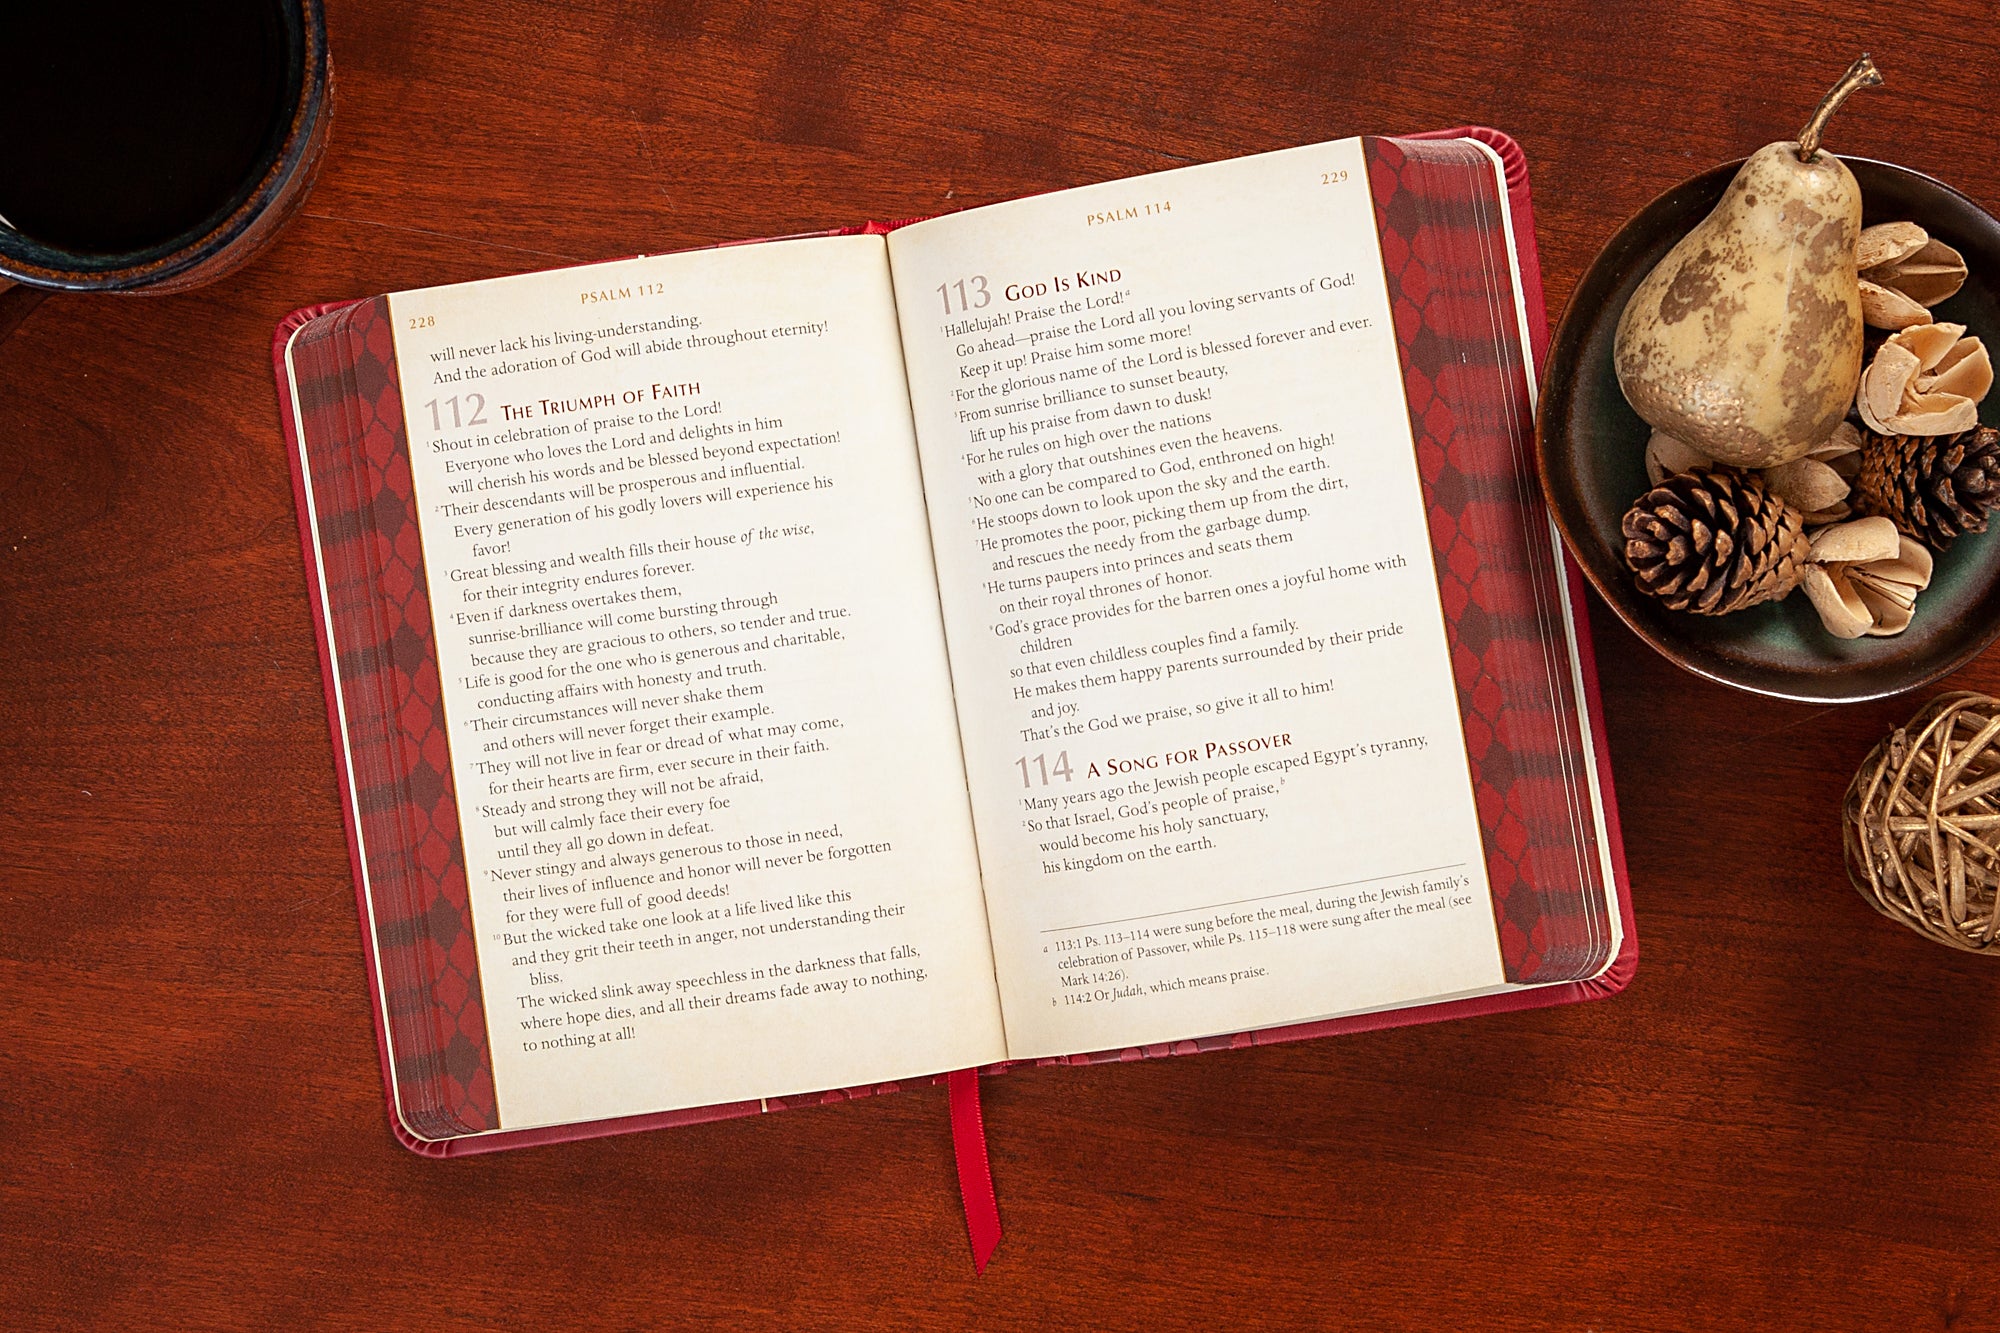 228
PSALM 112
will never lack his living-understanding.
And the adoration of God will abide throughout eternity!
112 THE TRIUMPH OF FAITH
1 Shout in celebration of praise to the Lord!
Everyone who loves the Lord and delights in him
will cherish his words and be blessed beyond expectation!
2 Their descendants will be prosperous and influential.
Every generation of his godly lovers will experience his
favor!
3 Great blessing and wealth fills their house of the wise,
for their integrity endures forever.
4 Even if darkness overtakes them,
sunrise-brilliance will come bursting through
because they are gracious to others, so tender and true.
5 Life is good for the one who is generous and charitable,
conducting affairs with honesty and truth.
6 Their circumstances will never shake them
and others will never forget their example.
7 They will not live in fear or dread of what may come,
for their hearts are firm, ever secure in their faith.
8 Steady and strong they will not be afraid,
but will calmly face their every foe
until they all go down in defeat.
9 Never stingy and always generous to those in need,
their lives of influence and honor will never be forgotten
for they were full of good deeds!
10 But the wicked take one look at a life lived like this
and they grit their teeth in anger, not understanding their
bliss.
The wicked slink away speechless in the darkness that falls,
where hope dies, and all their dreams fade away to nothing,
to nothing at all!
PSALM 114
229
113 GOD IS KIND
1 Hallelujah! Praise the Lord! a
Go ahead—praise the Lord all you loving servants of God!
Keep it up! Praise him some more!
2 For the glorious name of the Lord is blessed forever and ever.
3 From sunrise brilliance to sunset beauty,
lift up his praise from dawn to dusk!
4 For he rules on high over the nations
with a glory that outshines even the heavens.
5 No one can be compared to God, enthroned on high!
6 He stoops down to look upon the sky and the earth.
7 He promotes the poor, picking them up from the dirt,
and rescues the needy from the garbage dump.
8 He turns paupers into princes and seats them
on their royal thrones of honor.
9 God's grace provides for the barren ones a joyful home with
children
so that even childless couples find a family.
He makes them happy parents surrounded by their pride
and joy.
That's the God we praise, so give it all to him!
114 A SONG FOR PASSOVER
1 Many years ago the Jewish people escaped Egypt's tyranny,
2 So that Israel, God's people of praise, b
would become his holy sanctuary,
his kingdom on the earth.
a 113:1 Ps. 113–114 were sung before the meal, during the Jewish family's
celebration of Passover, while Ps. 115–118 were sung after the meal (see
Mark 14:26).
b 114:2 Or Judah, which means praise.